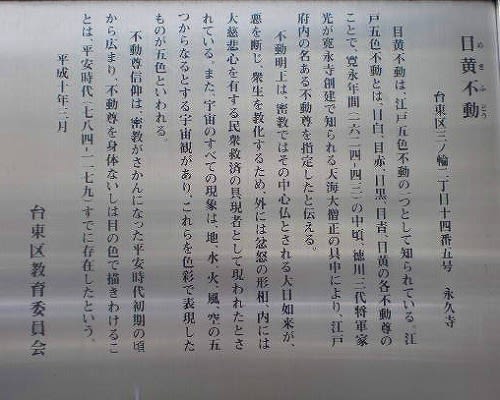 目黄不動
めきふどう
台東区三ノ輪二丁目十四番五号 永久寺
目黄不動は、江戸五色不動の一つとして知られている。江
戸五色不動とは、目白、目赤、目黒、目青、目黄の各不動尊の
ことで、寛永年間(一六二四-四三)の中頃、徳川三代将軍家
光が寛永寺創建で知られる天海大僧正の具申により、江戸
府内の名ある不動尊を指定したと伝える。
不動明王は、密教ではその中心仏とされる大日如来が、
悪を断じ、衆生を教化するため、外には忿怒の形相、内には
大慈悲心を有する民衆救済の具現者として現われたとさ
れている。また、宇宙のすべての現象は、地、水、火、風、空の五
つからなるとする宇宙観があり、これらを色彩で表現した
ものが五色といわれる。
不動尊信仰は、密教がさかんになった平安時代初期の頃
から広まり、不動尊を身体ないしは目の色で描きわけるこ
とは、平安時代(七八四-一一七九)すでに存在したという。
平成十年三月
台東区教育委員会